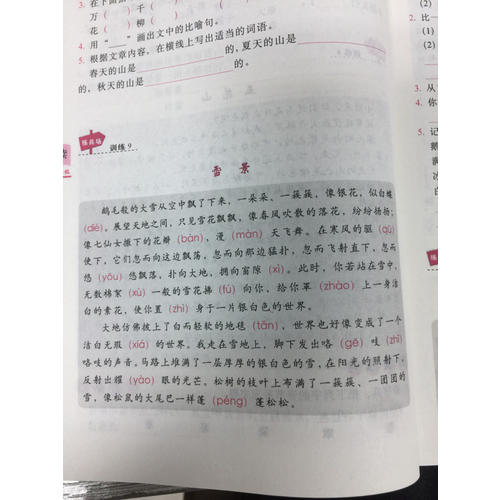 3. 在下面
万（ ）千（ ）
花（ ）柳（ ）
4. 用"___"画出文中的比喻句。
5. 根据文章内容，在横线上写出适当的词语。
春天的山是 的，夏天的山是
的，秋天的山是 的。
练兵场
训练 9
雪 景
鹅毛般的大雪从空中飘了下来，一朵朵、一蔟蔟，像银花，似白蝶
(dié)。展望天地之间，只见雪花飘飘，像春风吹散的落花，纷纷扬扬；
像七仙女撒下的花瓣（bàn），漫（màn）天飞舞。在寒风的驱（qū）
使下，它们忽而向这边飘荡，忽而向那边猛扑，忽而飞射直下，忽而
悠（yōu）悠飘荡，扑向大地，拥向窗隙（xì）。此时，你若站在雪中，
无数棉絮（xù）一般的雪花拂（fú）向你，给你罩（zhào）上一身洁
白的素花，使你置（zhì）身于一片银白色的世界。
大地仿佛披上了白而轻软的地毯（tǎn），世界也好像变成了一个
洁白无瑕（xiá）的世界。我走在雪地上，脚下发出咯（gē）吱（zhī）
咯吱的声音。马路上堆满了一层厚厚的银白色的雪，在阳光的照射下，
反射出耀（yào）眼的光芒。松树的枝叶上布满了一蔟蔟、一团团的
雪，像松鼠的大尾巴一样蓬（péng）蓬松松。
(2)
2. 比一
(1)
(2)
3. 从
4. 你
5. 记